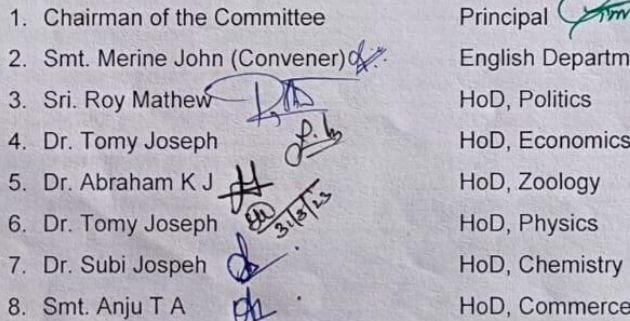 1. Chairman of the Committee Principal
2. Smt. Merine John (Convener) English Departm
3. Sri. Roy Mathew HoD, Politics
4. Dr. Tomy Joseph HoD, Economics
5. Dr. Abraham K J HoD, Zoology
6. Dr. Tomy Joseph 31/3/23 HoD, Physics
7. Dr. Subi Jospeh HoD, Chemistry
8. Smt. Anju T A HoD, Commerce